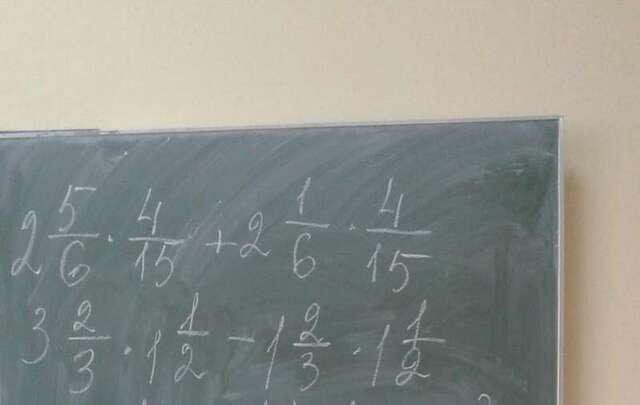 2 5/6 · 4/15 + 2 1/6 · 4/15
3 2/3 · 1 1/2 - 1 2/3 · 1 1/2